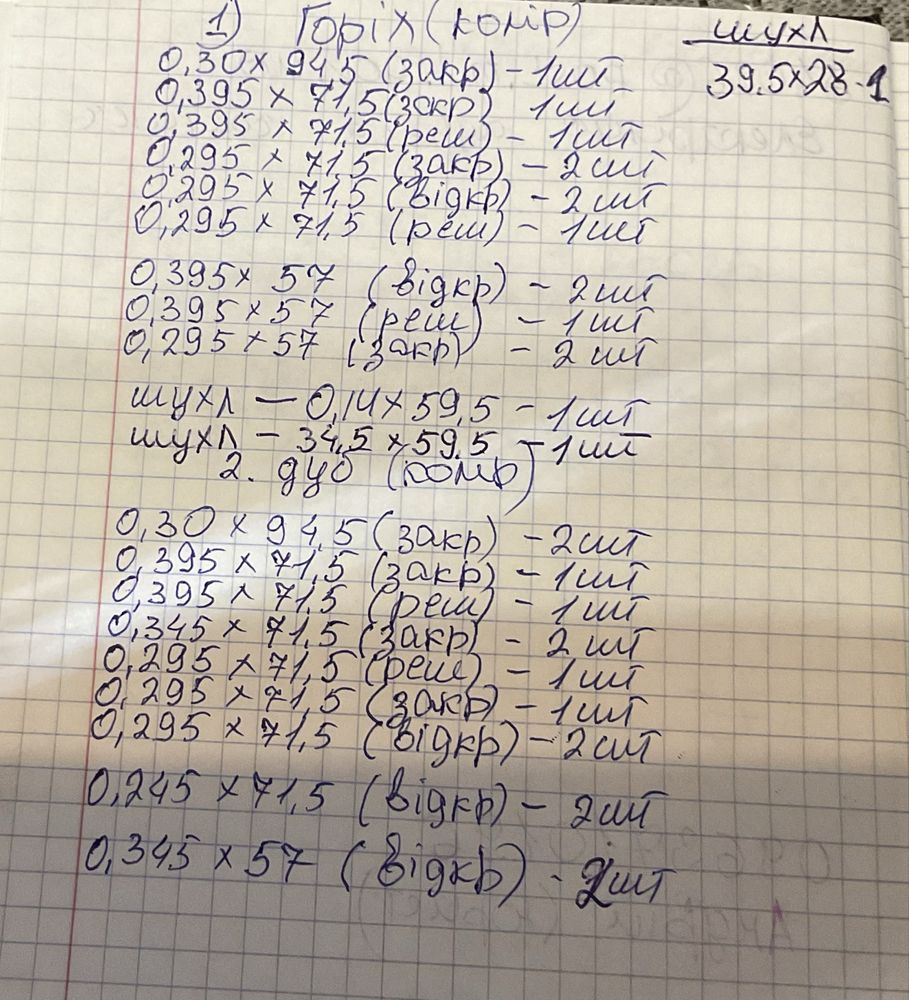 1) Горіх (комір)
шухл
39.5×28-1
0,30 × 94,5 (закр) - 1шт
0,395 × 71,5 (закр) 1шт
0,395 × 71,5 (реш) - 1шт
0,295 × 71,5 (закр) - 2шт
0,295 × 71,5 (відкр) - 2шт
0,295 × 71,5 (реш) - 1шт
0,395 × 57 (відкр) - 2шт
0,395 × 57 (реш) - 1шт
0,295 × 57 (закр) - 2шт
шухл — 0,14 × 59,5 - 1шт
шухл - 34,5 × 59,5 - 1шт
2. дуб (комр)
0,30 × 94,5 (закр) - 2шт
0,395 × 71,5 (закр) - 1шт
0,395 × 71,5 (реш) - 1шт
0,345 × 71,5 (закр) - 2шт
0,295 × 71,5 (реш) - 1шт
0,295 × 71,5 (закр) - 1шт
0,295 × 71,5 (відкр) - 2шт
0,245 × 71,5 (відкр) - 2шт
0,345 × 57 (відкр) - 2шт